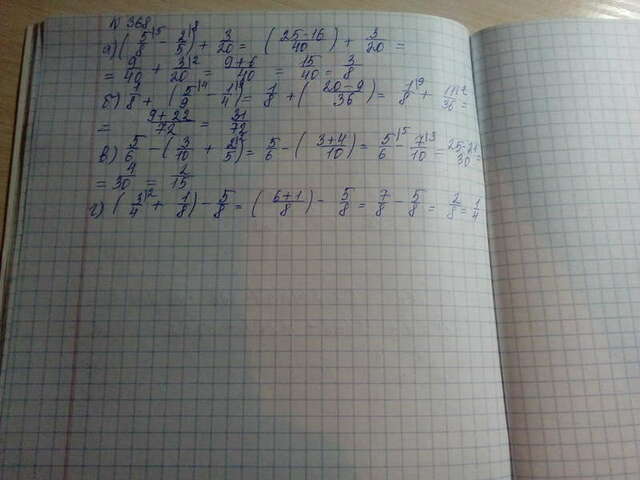 № 368
а) (5/8|5 − 2/5|8) + 3/20 = (25−16/40) + 3/20 =
= 9/40 + 3/20|2 = 9+6/40 = 15/40 = 3/8
б) 1/8 + (5/9|4 − 1/4|9) = 1/8 + (20−9/36) = 1/8|9 + 11|2/36 =
= 9+22/72 = 31/72
в) 5/6 − (3/10 + 2/5|2) = 5/6 − (3+4/10) = 5/6|5 − 7/10|3 = 25−21/30 =
= 4/30 = 2/15
г) (3/4|2 + 1/8) − 5/8 = (6+1/8) − 5/8 = 7/8 − 5/8 = 2/8 = 1/4